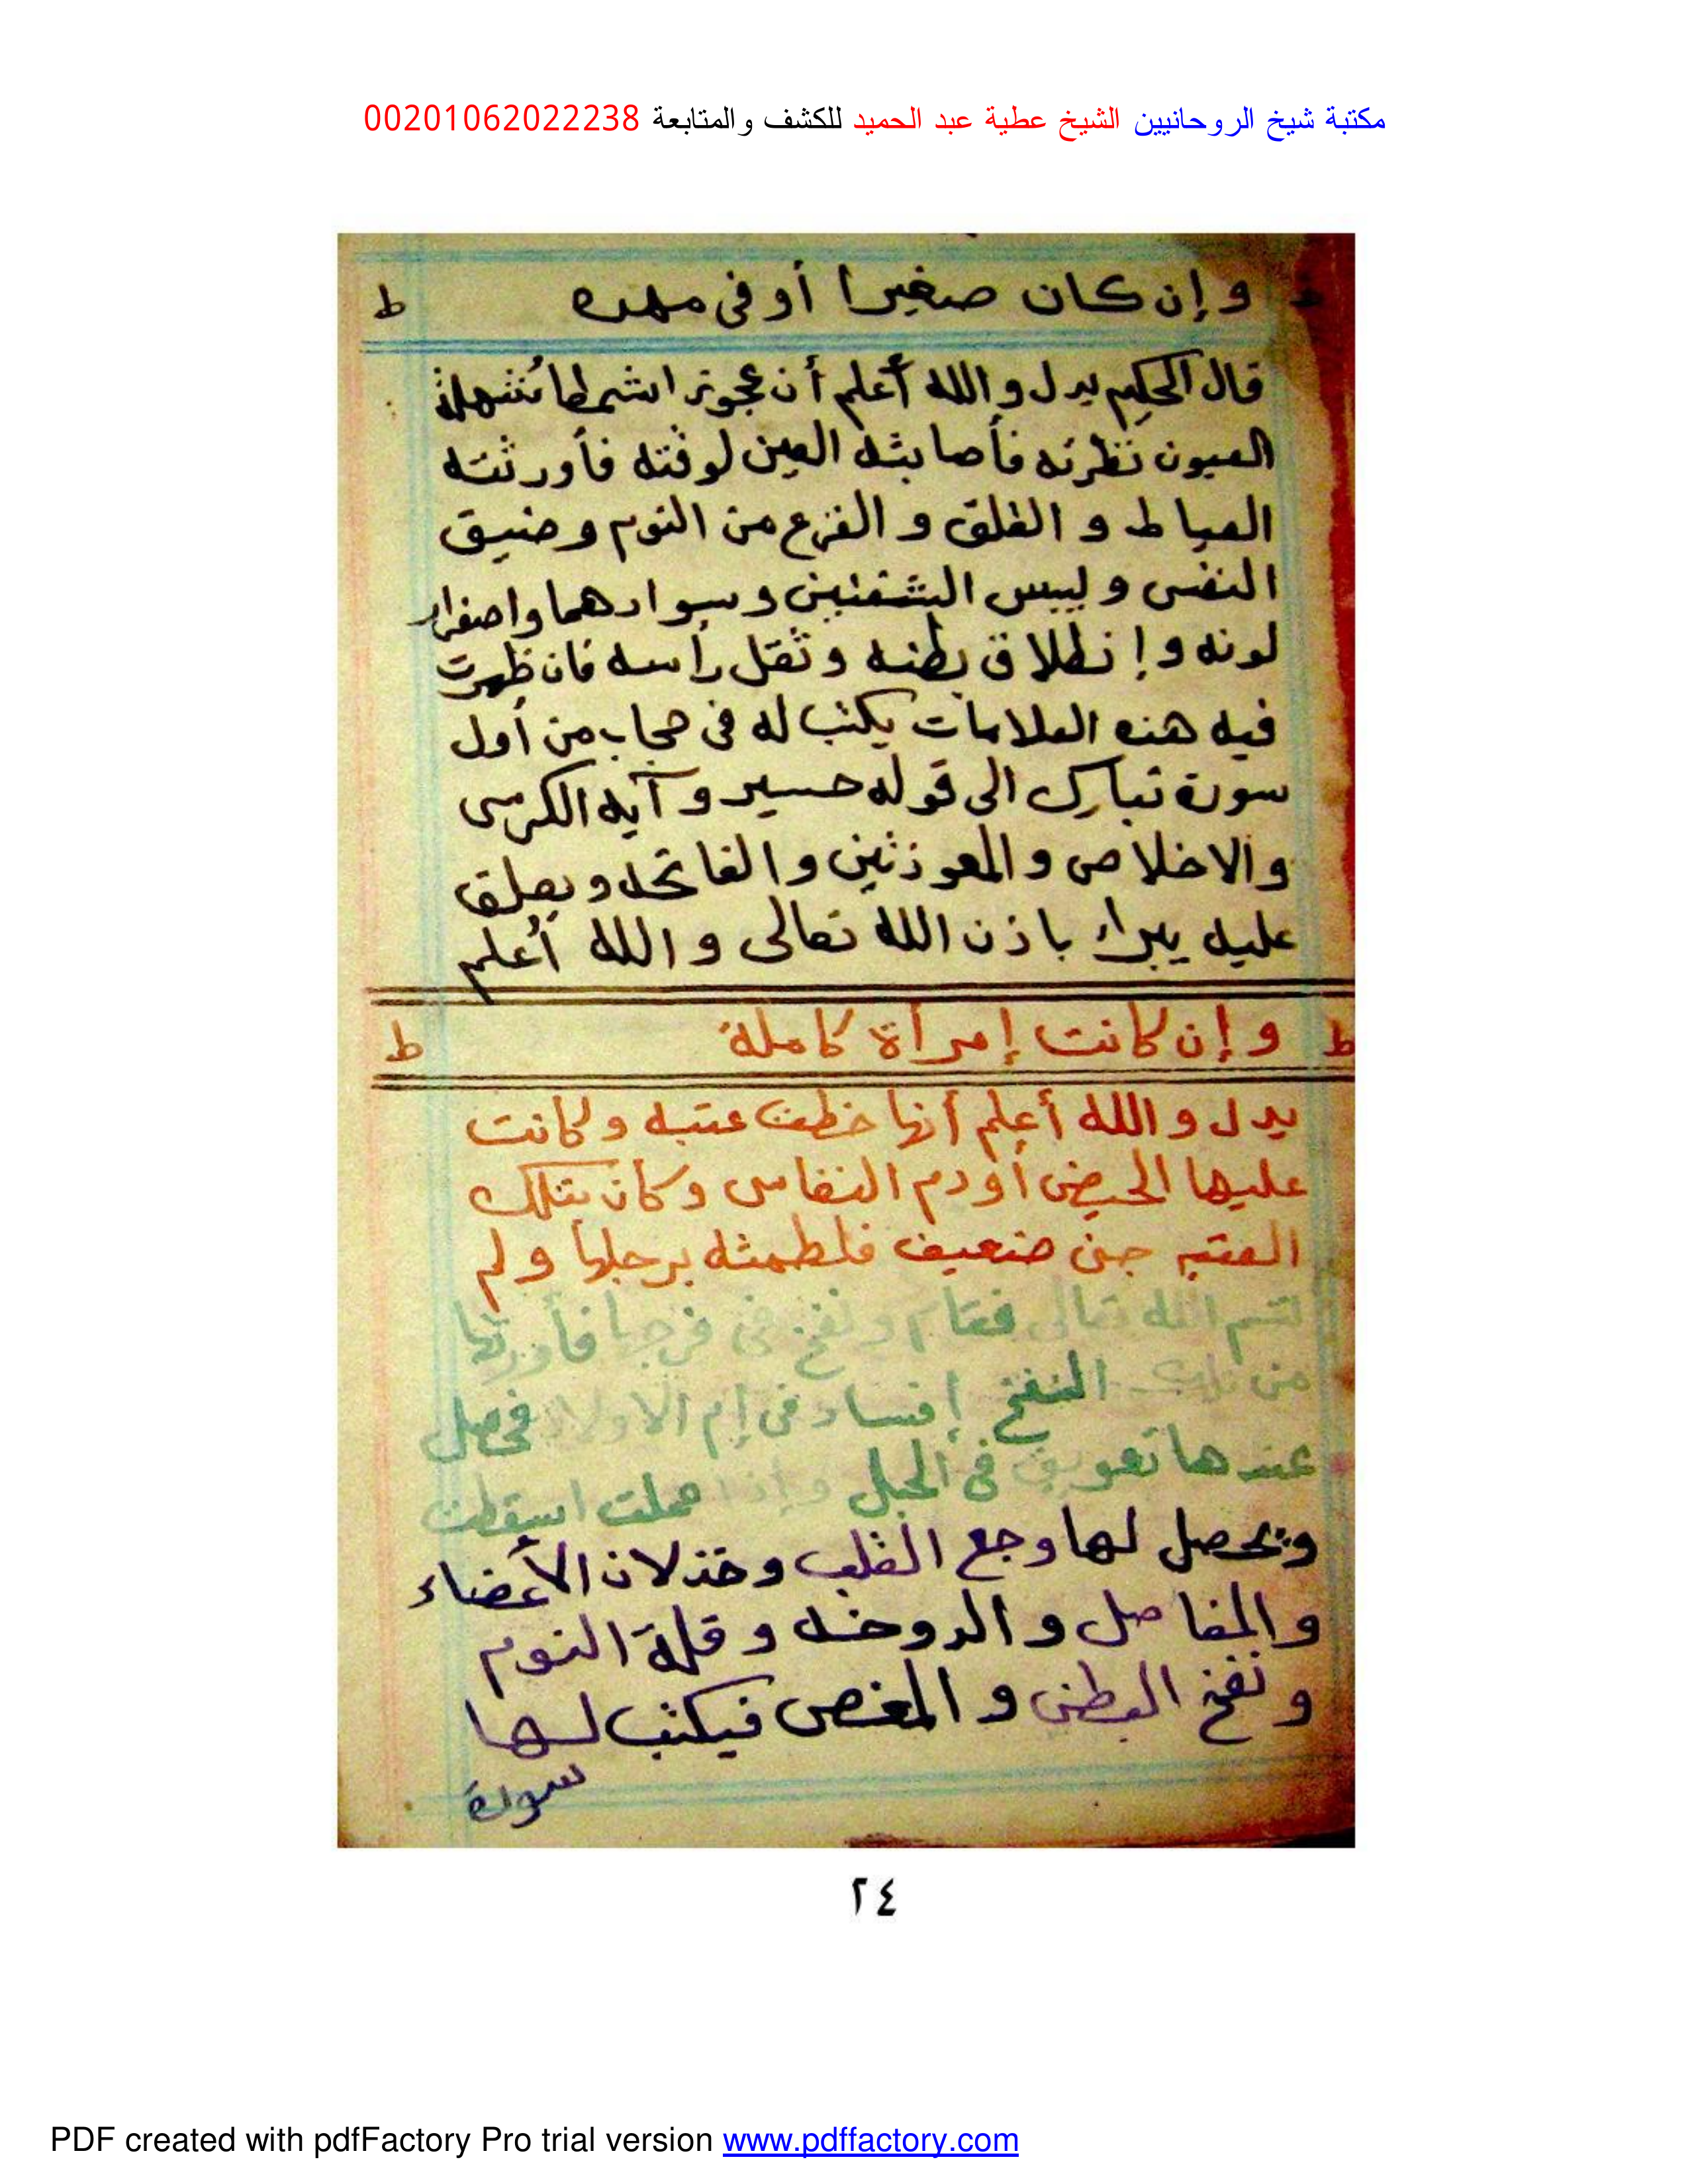 مكتبة شيخ الروحانيين الشيخ عطية عبد الحميد للكشف والمتابعة 00201062022238
وإن كان صغيرا أو فى مهده ط
قال الحكيم يدل والله أعلم أن عجوزا شمطا شهلة
العيون نظرته فأصابثه العين لوقته فأورثته
العياط و القلق و الفزع من النوم وضيق
النفس و ليبس الشفتين وسوادهما واصفرار
لونه و إنطلاق بطنه وثقل رأسه فان ظهرت
فيه هذه العلامات يكتب له فى حجاب من أول
سورة تبارك الى قوله حسير و آيه الكرسى
والاخلاص و المعوذتين و الفاتحه ويعلق
عليه يبراء باذن الله تعالى والله أعلم
ط وإن كانت إمرأة كاملة ط
يدل والله أعلم أنها خطت عتبه وكانت
عليها الحيض أو دم النفاس وكان بتلك
العتبه جن ضعيف فلطمثه برجلها ولم
تسم الله تعالى فقام ونفخ فى فرجها فأورثها
من تلك النفخ إفساد فى إم الاولاد فحصل
عندها تعويق فى الحبل وإذا حملت اسقطت
ويحصل لها وجع القلب وخذلان الأعضاء
والمفاصل و الدوخه و قلة النوم
ونفخ البطن و المغص فيكتب لها
سورة
٢٤
PDF created with pdfFactory Pro trial version www.pdffactory.com